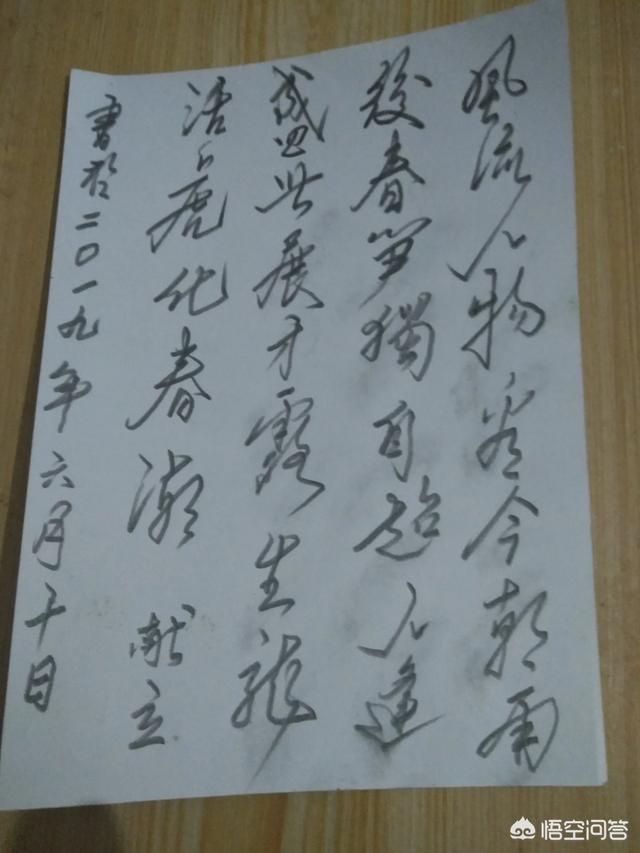 風流人物看今朝雨
後春笋獨自超人逢
盛世展才露生龍
活虎化春潮 献立
書於二〇一九年六月十日
悟空问答